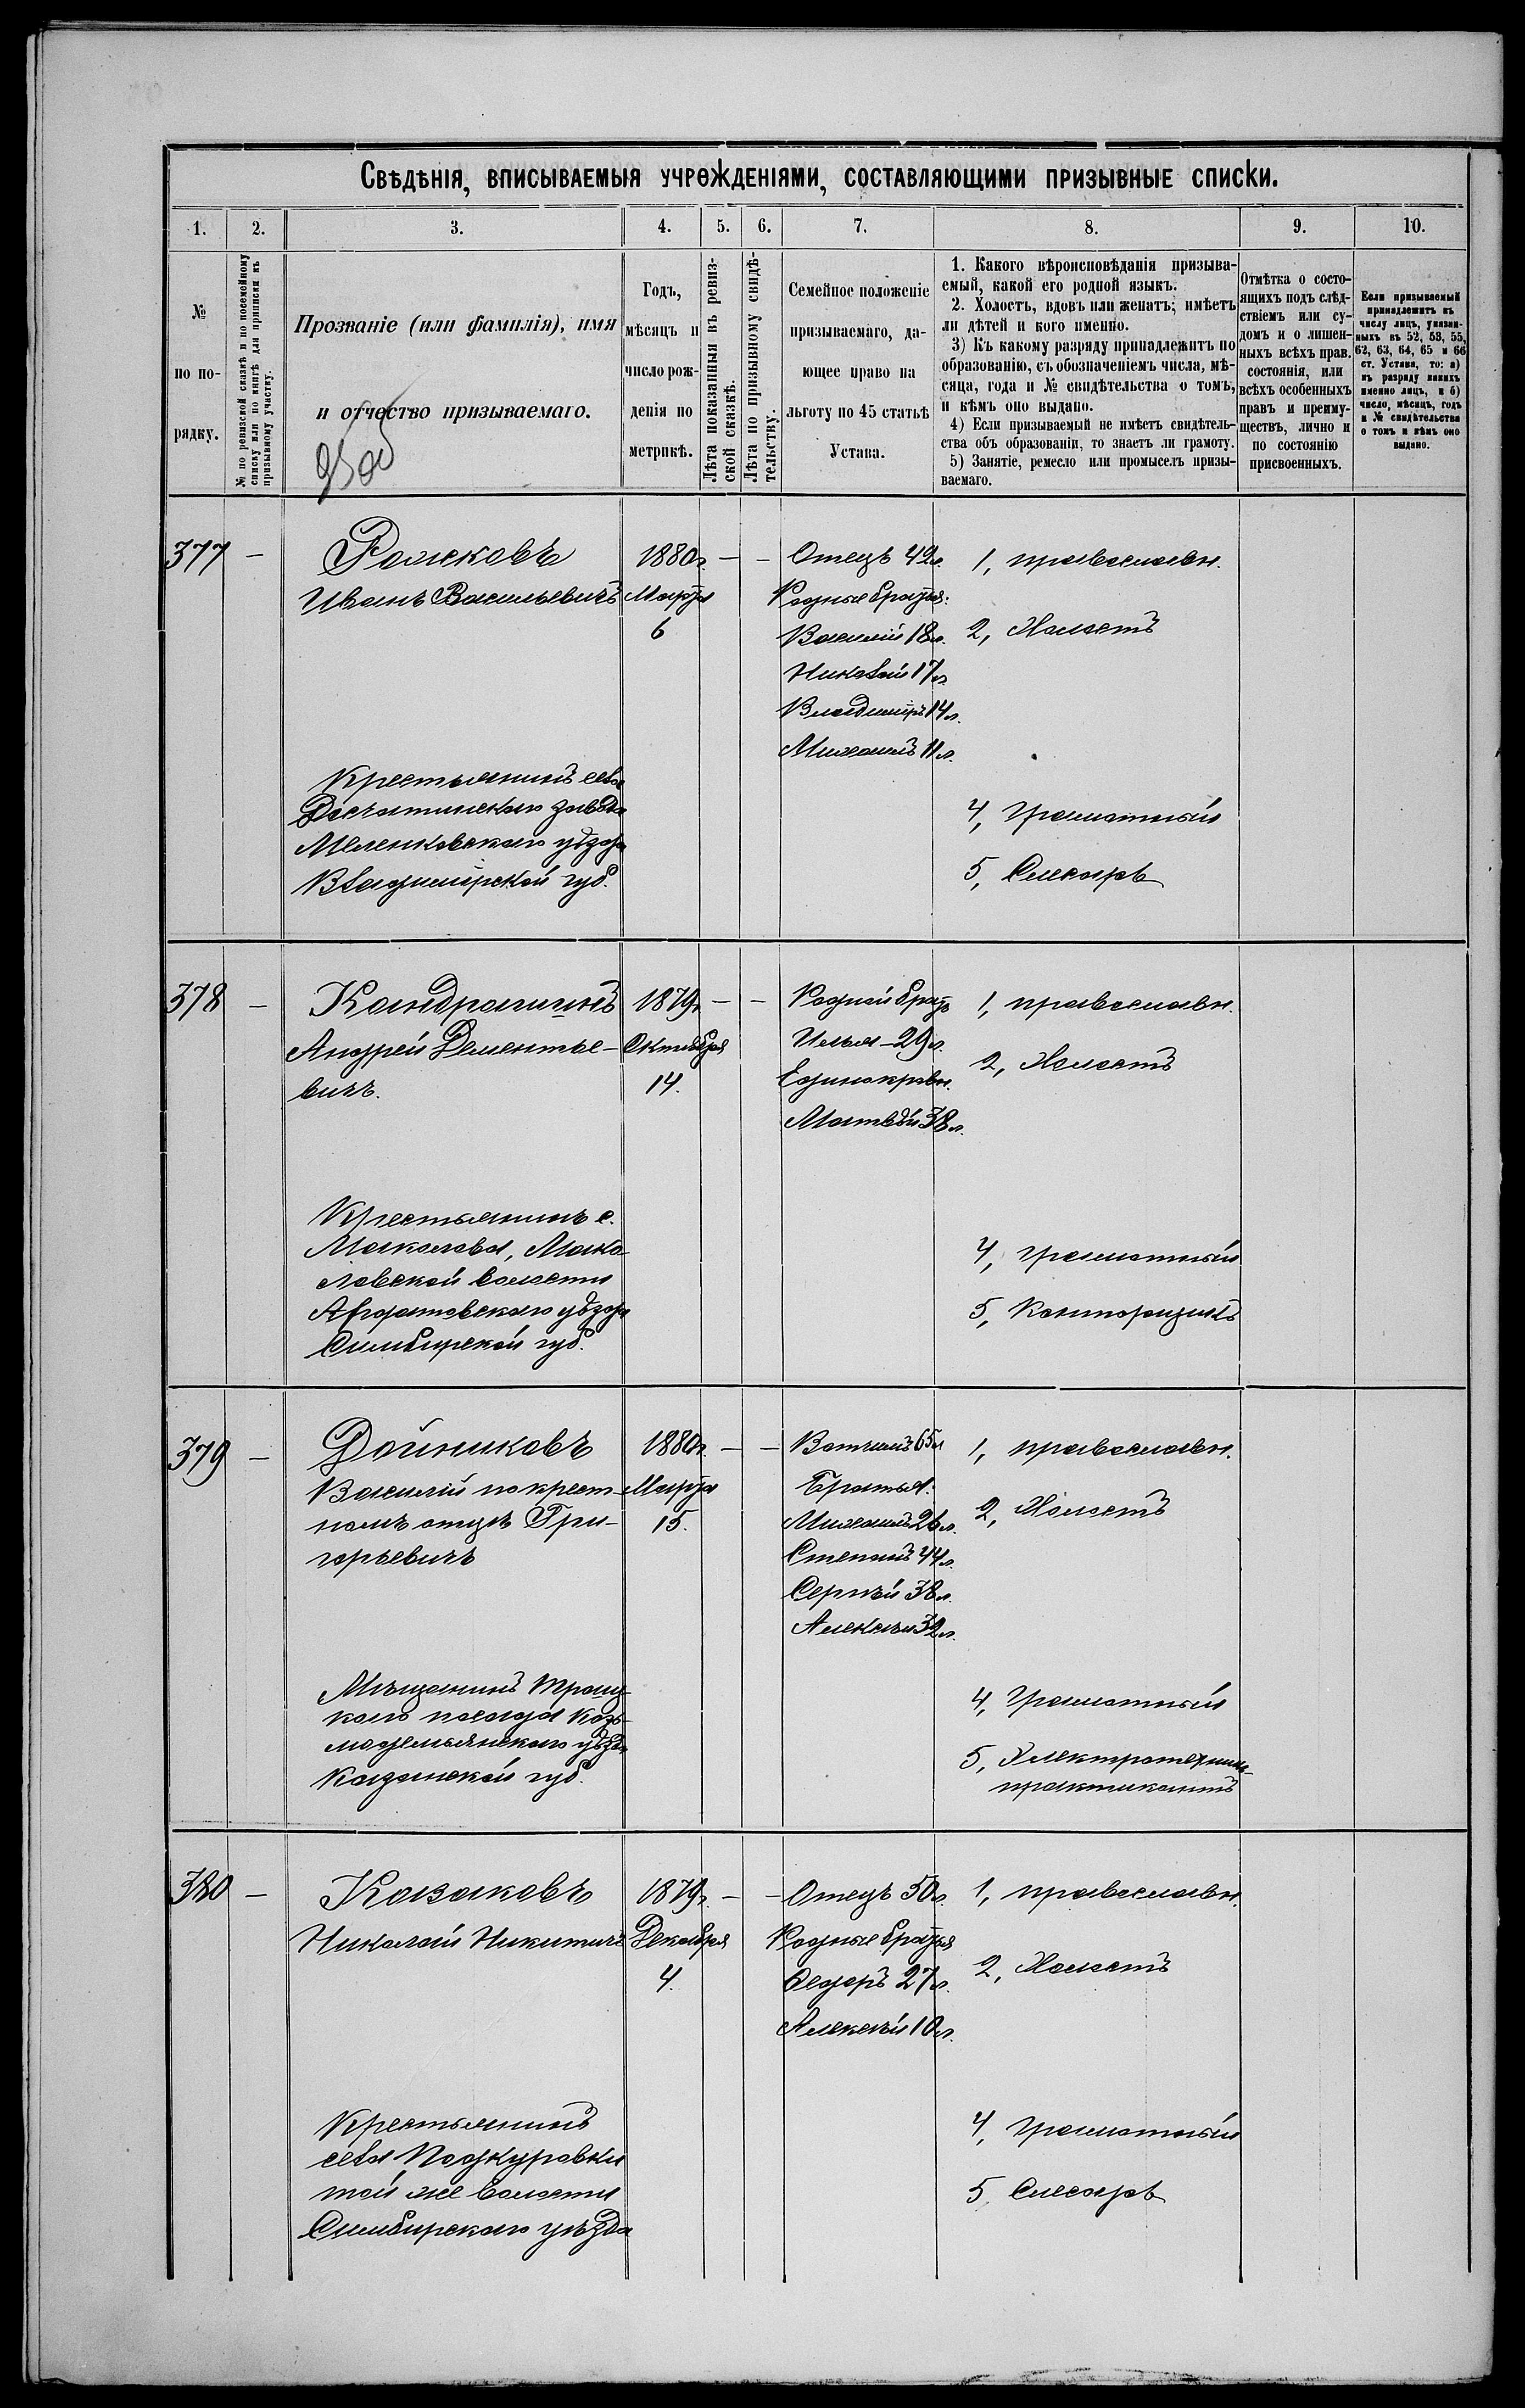 Свѣдѣнія, вписываемыя учрежденіями, составляющими призывные списки.
1. 2. 3. 4. 5. 6. 7. 8. 9. 10.
№ по порядку.
№ по ревизской сказкѣ и по посемейному
списку или по книгѣ для приписки къ
призывному участку.
Прозваніе (или фамилія), имя
и отчество призываемаго.
Годъ,
мѣсяцъ и
число рож-
денія по
метрикѣ.
Лѣта показанныя въ ревиз-
ской сказкѣ.
Лѣта по призывному свидѣ-
тельству.
Семейное положеніе
призываемаго, да-
ющее право на
льготу по 45 статьѣ
Устава.
1. Какого вѣроисповѣданія призыва-
емый, какой его родной языкъ.
2. Холостъ, вдовъ или женатъ; имѣетъ
ли дѣтей и кого именно.
3) Къ какому разряду принадлежитъ по
образованію, съ обозначеніемъ числа, мѣ-
сяца, года и № свидѣтельства о томъ,
и кѣмъ оно выдано.
4) Если призываемый не имѣетъ свидѣтель-
ства объ образованіи, то знаетъ ли грамоту.
5) Занятіе, ремесло или промыселъ призы-
ваемаго.
Отмѣтка о состо-
ящихъ подъ слѣд-
ствіемъ или су-
домъ и о лишен-
ныхъ всѣхъ прав.
состоянія, или
всѣхъ особенныхъ
правъ и преиму-
ществъ, лично и
по состоянію
присвоенныхъ.
Если призываемый
принадлежитъ къ
числу лицъ, указан-
ныхъ въ 52, 53, 55,
62, 63, 64, 65 и 66
ст. Устава, то: а)
къ разряду какихъ
именно лицъ, и б)
число, мѣсяцъ, годъ
и № свидѣтельства
о томъ и кѣмъ оно
выдано.
377 —
Ивanъ Васильевичъ
Крестьянинъ села
Досчатинскаго завода
Меленковскаго уѣзда
Владимірской губ.
1880г. — —
Марта
6
Отецъ 42л.
Родные братья:
Василій 18л.
Николай 17л.
Владиміръ 14л.
Михаилъ 11л.
1, православн.
2, Холостъ
4, Грамотный
5, Слесарь
378 —
Кандрашинъ
Андрей Дементье-
вичъ.
Крестьянинъ с.
Маколова, Мако-
ловской волости
Ардатовскаго уѣзда
Симбирской губ.
1879г. — —
Октября
14.
Родной братъ
Илья — 29л.
Единокровн.
Матвѣй 38л.
1, православн.
2, Холостъ
4, грамотный
5, Конторщикъ
379 —
Дойниковъ
Василій по крест-
номъ отцѣ Гри-
горьевичъ
Мѣщанинъ Троиц-
каго посада Козь-
модемьянскаго уѣзда
Казанской губ.
1880г. — —
Марта
15.
Вотчимъ 65л
Братья:
Михаилъ 26л.
Степанъ 44л.
Сергѣй 38л.
Алексѣй 32л.
1, православн.
2, Холостъ
4, Грамотный
5, Электротехникъ-
практикантъ
380 —
Казаковъ
Николай Никитичъ
Крестьянинъ
села Поджуровки
той же волости
Симбирскаго уѣзда
1879г. — —
Декабря
4.
Отецъ 50л.
Родные братья
Ѳедоръ 27л.
Алексѣй 10л.
1, православн.
2, Холостъ
4, Грамотный
5, Слесарь